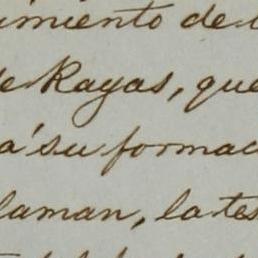 imiento de
de Rayas, que
a su formac
laman, la tes